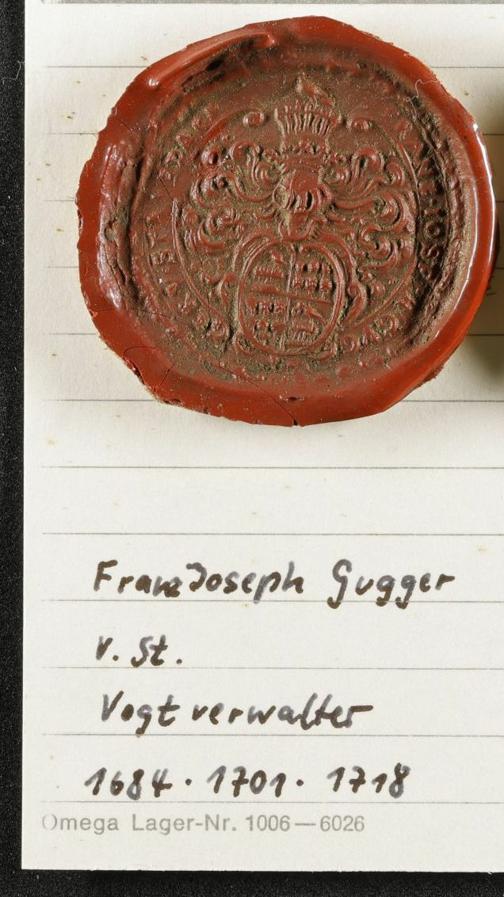 Franz Joseph Gugger
v. St.
Vogtverwalter
1684 · 1701 · 1718
Omega Lager-Nr. 1006—6026